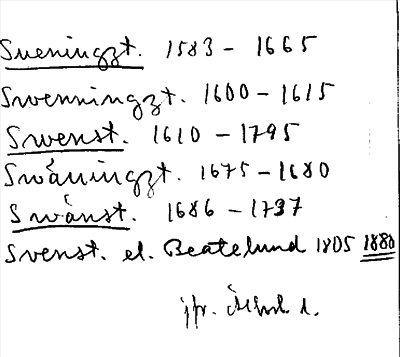 Sueningzt. 1583 - 1665
Swenningzt. 1600 - 1615
Swenst. 1610 - 1795
Swåningzt. 1675 - 1680
Swånst. 1686 - 1737
Svenst. el. Beatelund 1805 1880
jfr.